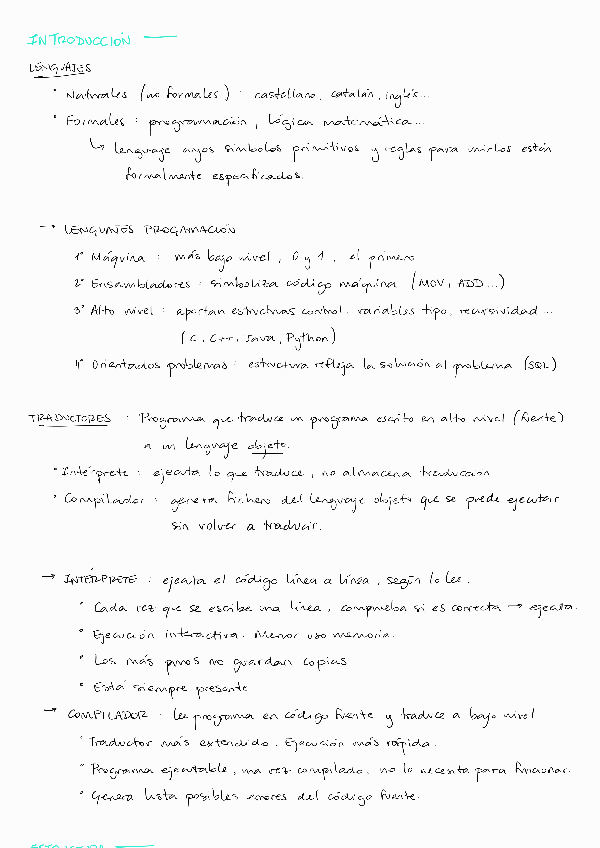 INTRODUCCIÓN
LENGUAJES
° Naturales (no formales) : castellano, catalán, inglés...
° Formales : programación, lógica matemática...
↳ lenguaje cuyos símbolos primitivos y reglas para unirlos están
formalmente especificados.
→ ° LENGUAJES PROGRAMACIÓN
1° Máquina : más bajo nivel, 0 y 1, el primero
2° Ensambladores : simboliza código máquina (MOV, ADD...)
3° Alto nivel : aportan estructuras control, variables tipo, recursividad...
(C, C++, Java, Python)
4° Orientados problemas : estructura refleja la solución al problema (SQL)
TRADUCTORES : Programa que traduce un programa escrito en alto nivel (fuente)
a un lenguaje objeto.
° Intérprete : ejecuta lo que traduce, no almacena traducción
° Compilador : genera fichero del lenguaje objeto que se puede ejecutar
sin volver a traducir.
→ INTÉRPRETE : ejecuta el código línea a línea, según lo lee.
° Cada vez que se escribe una línea, comprueba si es correcta → ejecuta.
° Ejecución interactiva. Menor uso memoria.
° Los más puros no guardan copias
° Está siempre presente
→ COMPILADOR : lee programa en código fuente y traduce a bajo nivel
° Traductor más extendido. Ejecución más rápida.
° Programa ejecutable, una vez compilado, no lo necesita para funcionar.
° Genera lista posibles errores del código fuente.